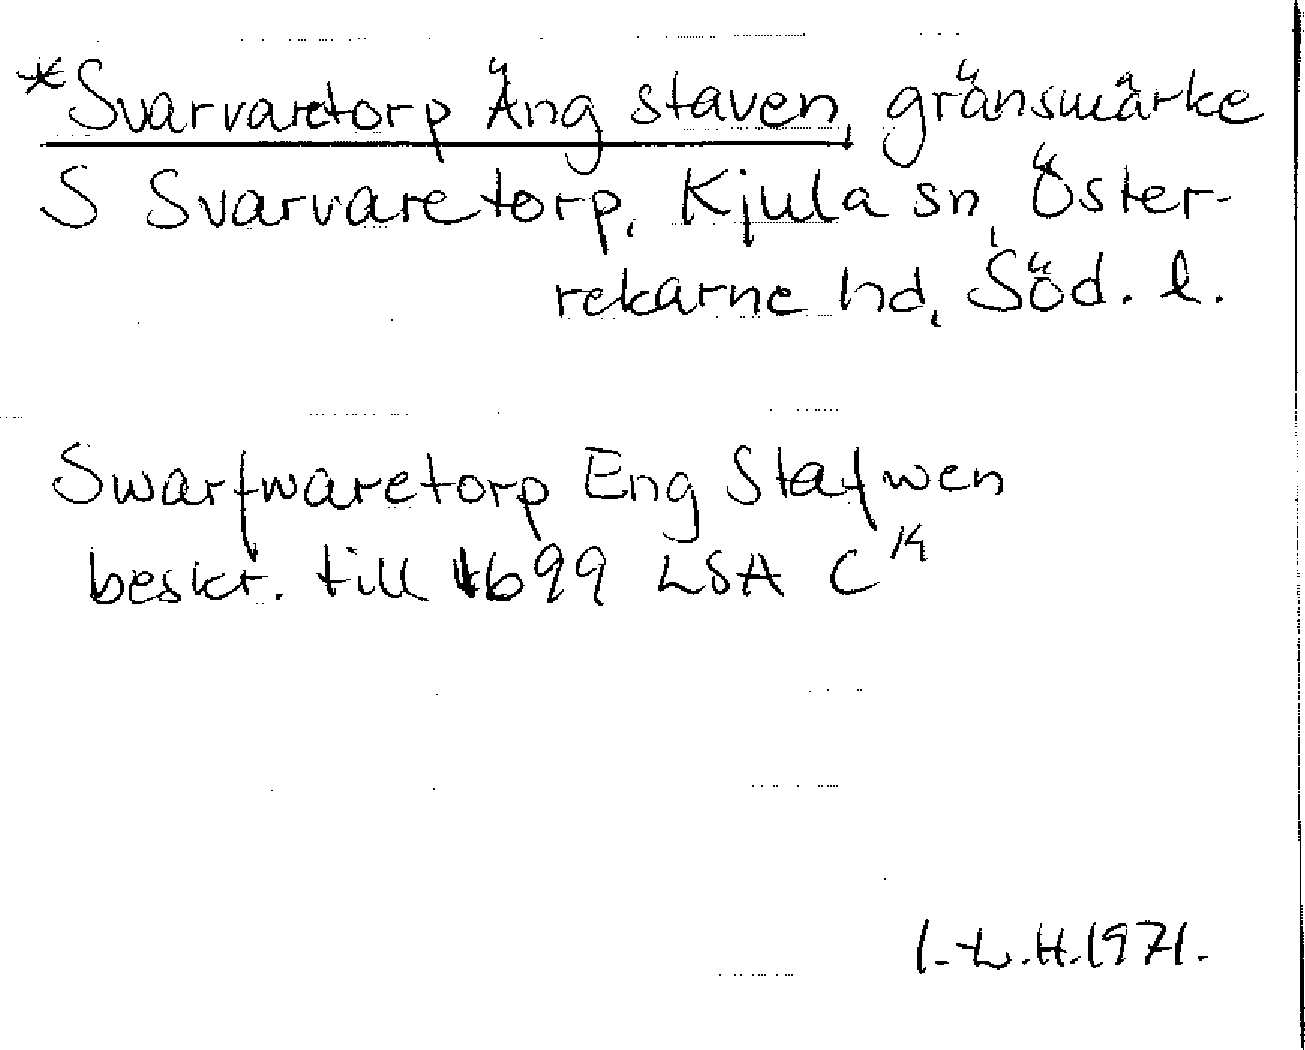 *Svarvaretorp Äng staven, gränsmärke
S Svarvaretorp, Kjula sn, Öster-
rekarne hd, Söd. l.
Swarfwaretorp Eng Stafwen
beskr. till 1699 LSA C 14
I.-L.H.1971.